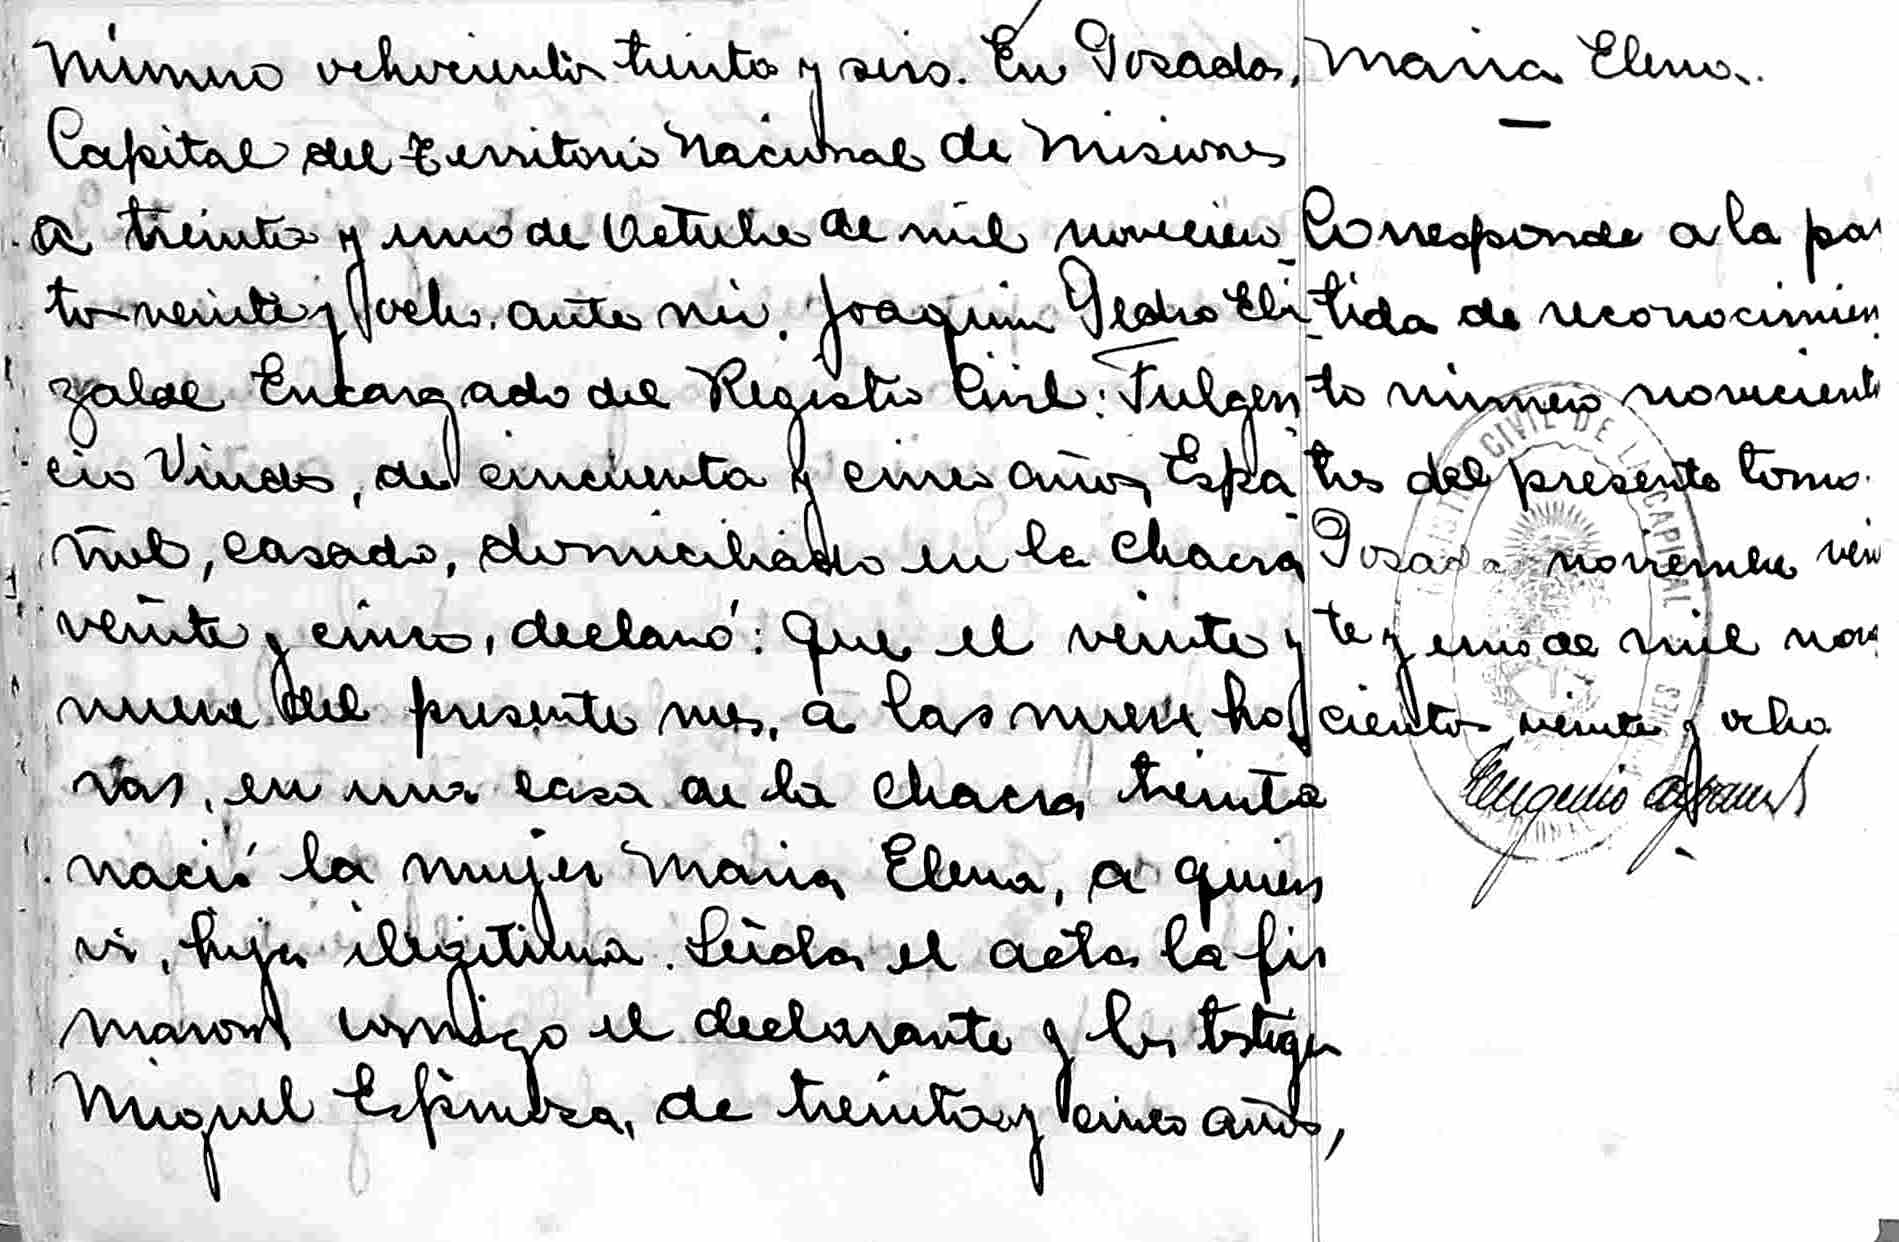 Número ochocientos treinta y seis. En Posadas,
Capital del Territorio Nacional de Misiones
a treinta y uno de Octubre de mil novecien
tos veinte y ocho, ante mi, Joaquin Pedro Eli
zalde Encargado del Registro Civil: Fulgen
cio Vindo, de cincuenta y cinco años, Espa
ñol, casado, domiciliado en la chacra
veinte y cinco, declaró: Que el veinte y
nueve del presente mes, a las nueve ho
ras, en una casa de la chacra treinta
nació la mujer Maria Elena, a quien
vi, hija ilegitima. Leida el acta la fir
maron conmigo el declarante y los testigos
Miguel Espinoza, de treinta y cinco años,
Maria Elena.
Corresponde a la par
tida de reconocimien
to número noveciento
tres del presente tomo.
Posadas noviembre vein
te y uno de mil nove
cientos veinte y ocho
Eugenio
CIVIL DE LA CAPITAL